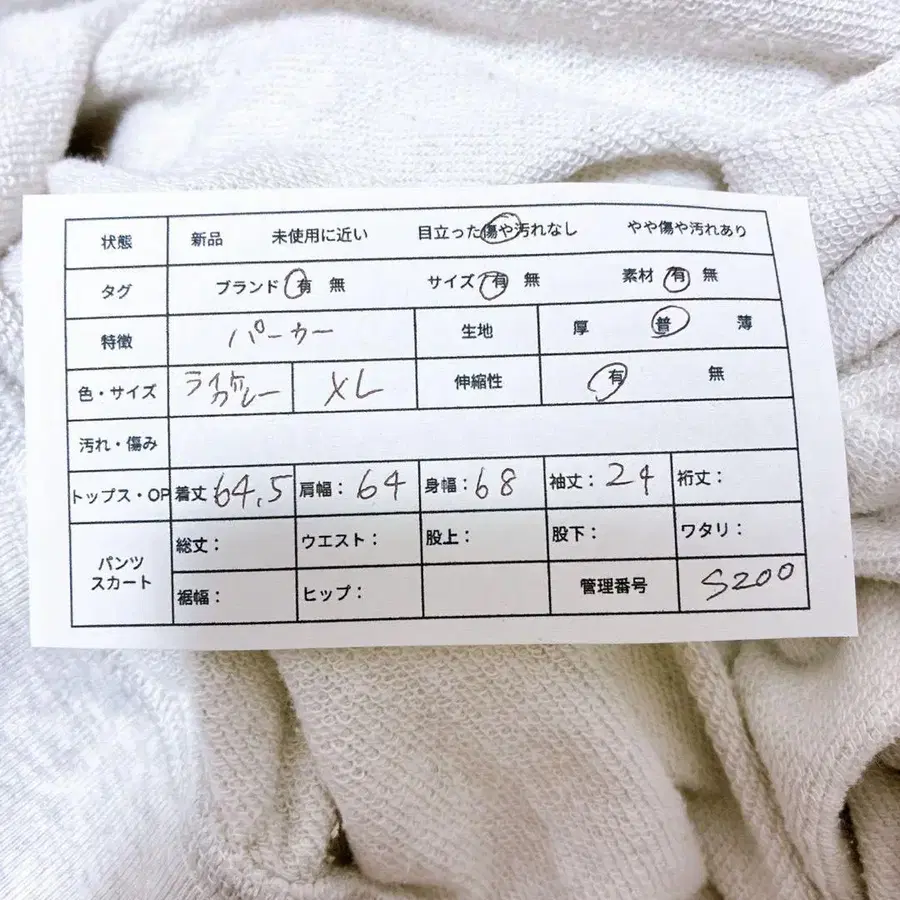 状態 新品 未使用に近い 目立った傷や汚れなし やや傷や汚れあり
タグ ブランド 有 無 サイズ 有 無 素材 有 無
特徴 パーカー 生地 厚 普 薄
色・サイズ ライトグレー XL 伸縮性 有 無
汚れ・傷み
トップス・OP 着丈 64.5 肩幅: 64 身幅: 68 袖丈: 24 裄丈:
パンツ
スカート
総丈: ウエスト: 股上: 股下: ワタリ:
裾幅: ヒップ: 管理番号 S200